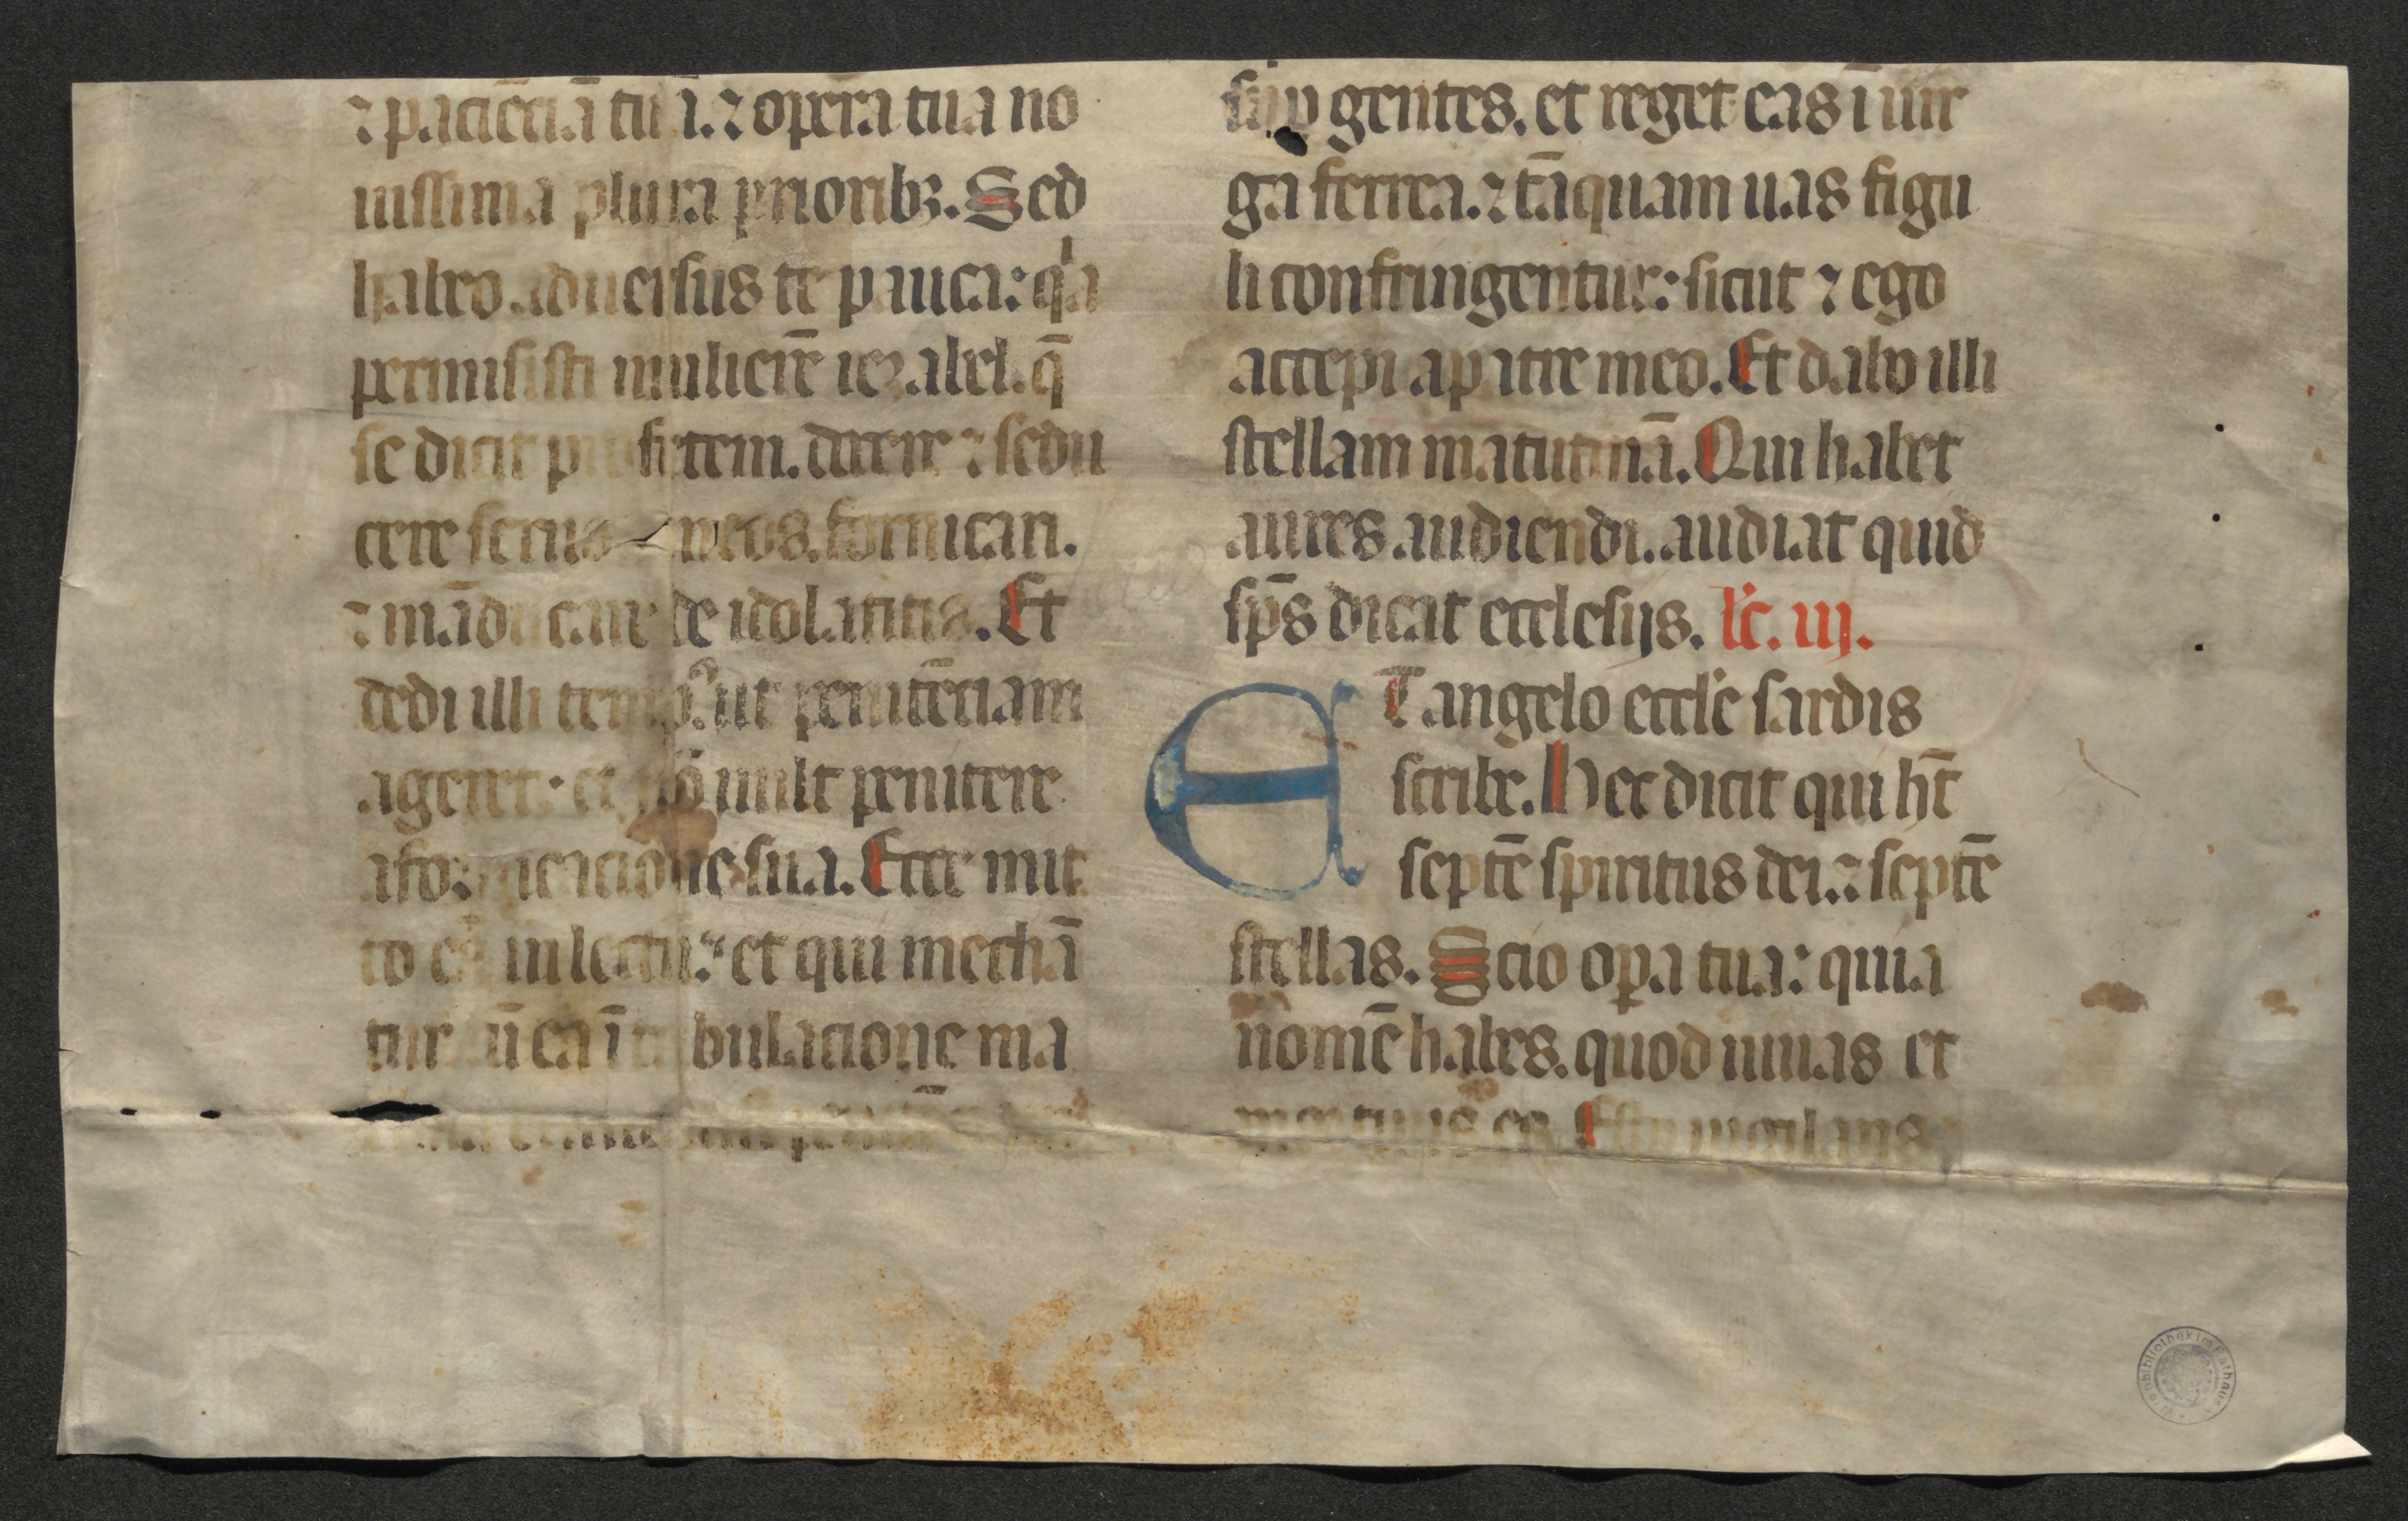 ⁊ paciēciā tuā. ⁊ opera tua no
uissima plura prioribꝫ. Sed
habeo aduersus te pauca: qͥa
permisisti mulierē iezabel. q̄
se dicit profetem. docere ⁊ sedu
cere seruos meos. fornicari.
⁊ māducare de idolaticis. Et
dedi illi temp᷒. ut penitēciam
ageret: et nō uult penitere
a fornicacione sua. Ecce mit
to eā in lectū: et qui mechā
tur cū ea ī tribulacione ma
sup gentes. et reget eas ī uir
ga ferrea. ⁊ tāquam uas figu
li confringentur: sicut ⁊ ego
accepi a patre meo. Et dabo illi
stellam matutinā. Qui habet
aures audiendi. audiat quid
sp̄s dicat ecclesijs. lc̄. iij.
ET angelo eccl'e sardis
scribe. Hec dicit qui h̄t
septē spiritus dei. ⁊ septē
stellas. Scio oꝑa tua: quia
nomē habes. quod uiuas et
mortuus es. Esto uigilans
Wienbibliothek im Rathaus